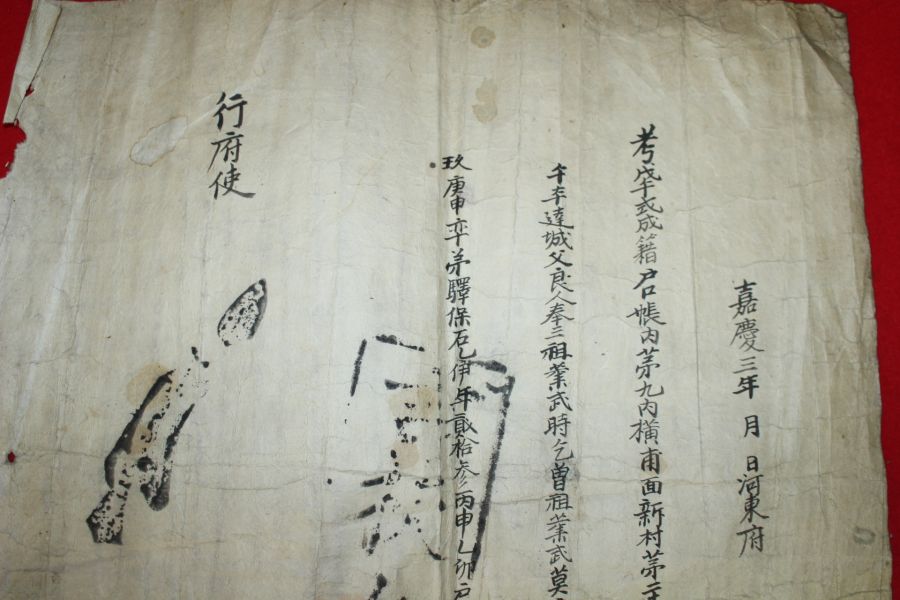 嘉慶三年 月 日河東府
考戊午式成籍戶帳內第九內橫甫面新村第二
千本達城父良人奉三祖業武時乞曽祖業武莫
玖庚申率弟驛保石乙伊年貳拾參丙申乙卯戶
行府使